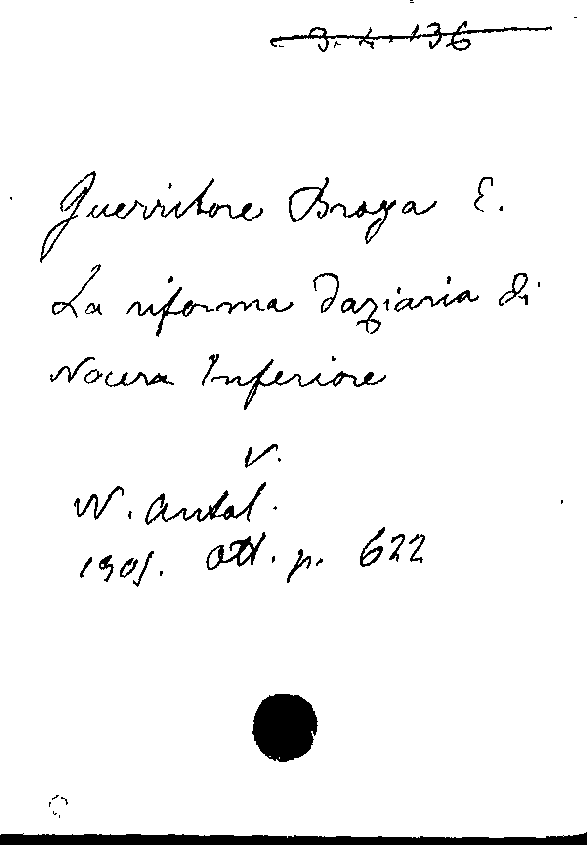 3. 4. 136
Guerritore Broya E.
La riforma daziaria di
Nocera Inferiore
V.
N. Antol.
1905. Ott. p. 622